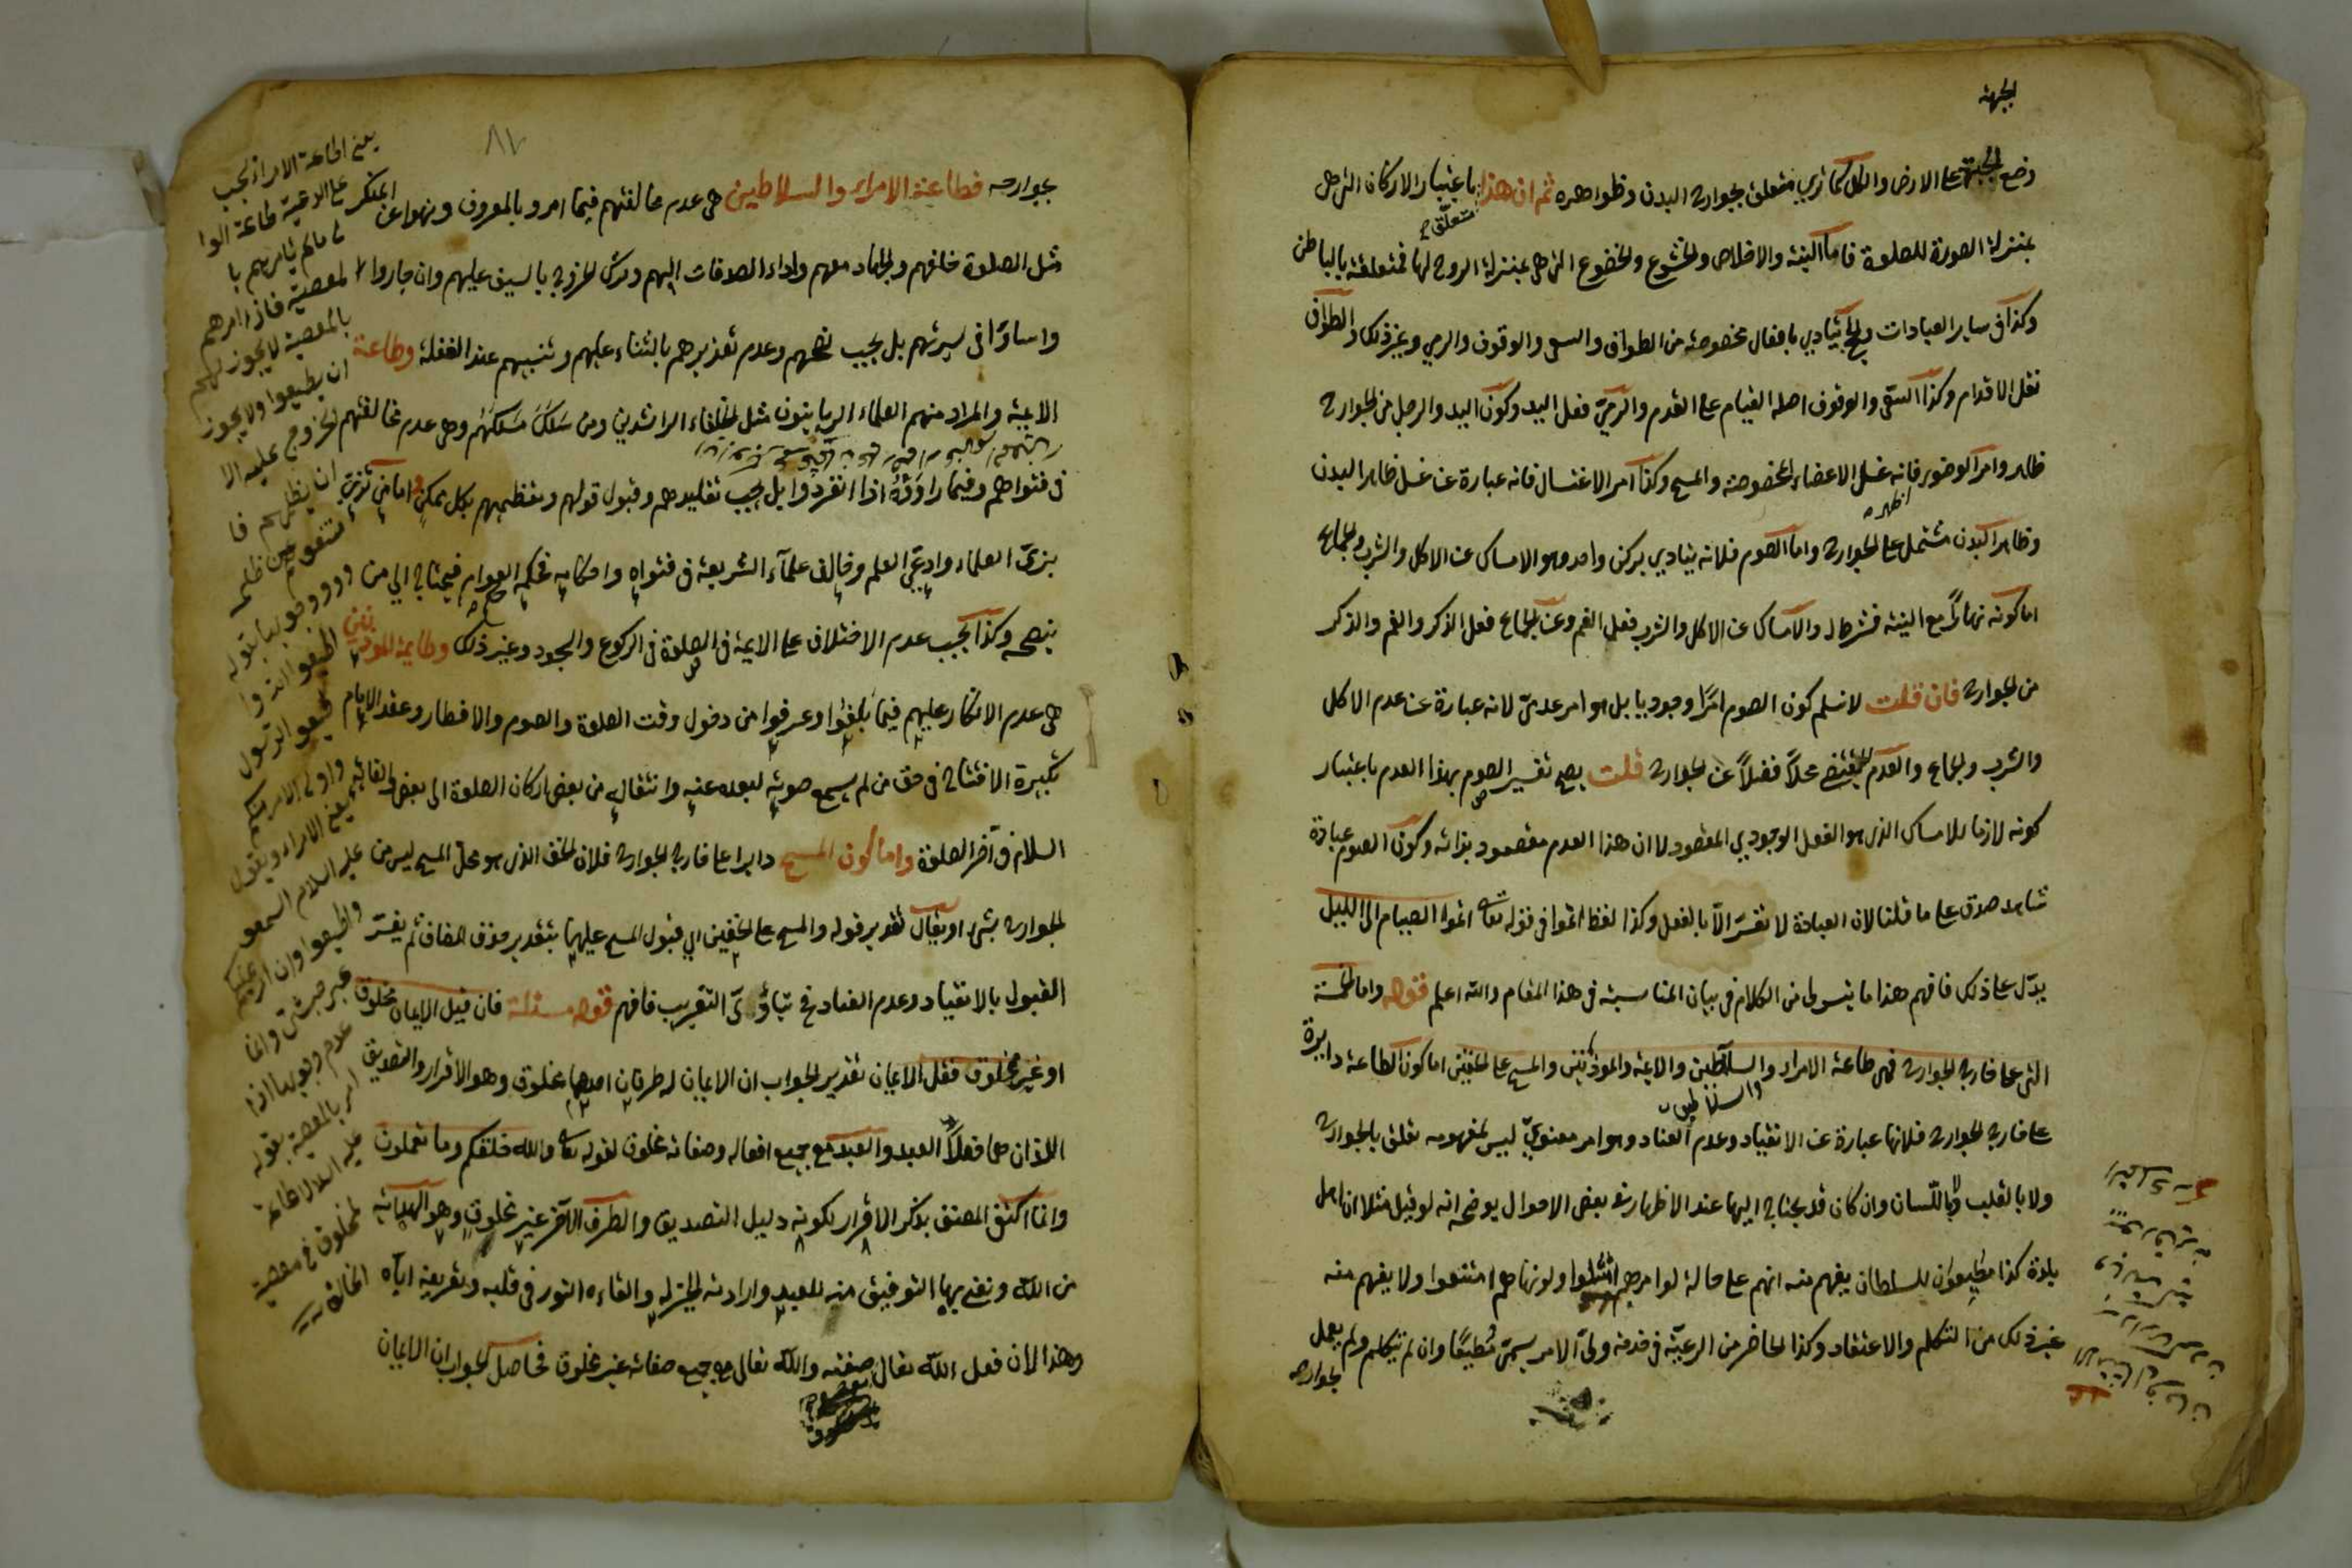 الجبهة
وضع الجبهة على الارض والكل كما تري متعلق بجوارح البدن وظواهره ثم ان هذا باعتبار الاركان التي هي
بمنزلة الصورة للصلوة فاما النية والاخلاص والخشوع والخضوع التي هي بمنزلة الروح لها فمتعلقة بالباطن
وكذا في ساير العبادات والحج يتادي بافعال مخصوصة من الطواف والسعي والوقوف والرمي وغير ذلك والطواف
نقل الاقدام وكذا السعي والوقوف اصله القيام على القدم والرمي فعل اليد وكون اليد والرجل من الجوارح
ظاهر وامر الوضوء فانه غسل الاعضاء المخصوصة والمسح وكذا امر الاغتسال فانه عبارة عن غسل ظاهر البدن
وظاهر البدن مشتمل على الجوارح واما الصوم فلانه يتادي بركن واحد وهو الامساك عن الاكل والشرب والجماع
اما كونه نهارًا مع النية فشرط له والامساك عن الاكل والشرب فعل الفم وعن الجماع فعل الذكر والفم والذكر
من الجوارح فان قلت لا نسلم كون الصوم امرًا وجوديا بل هو امر عدميّ لانه عبارة عن عدم الاكل
والشرب والجماع والعدم لا يقتضي محلاً فضلاً عن الجوارح قلت يصح تفسير الصوم بهذا العدم باعتبار
كونه لازما للامساك الذي هو الفعل الوجودي المقصود لا ان هذا العدم مقصود بذاته وكون الصوم عبادة
شاهد صدق على ما قلنا لان العبادة لا تفسّر الّا بالفعل وكذا لفظ اتموا في قوله تعالى اتموا الصيام الى الليل
يدّل على ذلك فافهم هذا ما يتسر لي من الكلام في بيان المناسبة في هذا المقام والله اعلم قوله واما الخمسة
التي على خارج الجوارح فهي طاعة الامراء والسلاطين والايمة والموذنين والمسح على الخفين اما كون الطاعة دايرة
على خارج الجوارح فلانها عبارة عن الانقياد وعدم العناد وهو امر معنويّ ليس لمفهومه تعلق بالجوارح
ولا بالقلب ولا باللّسان وان كان قد يحتاج اليها عند الاظهار في بعض الاحوال يوضحه انه لو قيل مثلا ان اهل
بلدة كذا مطيعوان للسلطان يفهم منه انهم على حالة لو امرهم امتثلوا ولو نهاهم امتنعوا ولا يفهم منه
غير ذلك من التكلم والاعتقاد وكذا الحاضر من الرعيّة في خدمة وليّ الامر يسمّى مُطيعًا وان لم يتكلم ولم يعمل
بجوارحه
٨٧
بجوارحه فطاعة الامراء والسلاطين هي عدم مخالفتهم فيما امرو بالمعروف ونهوا عن المنكر
مثل الصلوة خلفهم والجهاد معهم واداء الصدقات اليهم وترك الخروج بالسيف عليهم وان جاروا
واساوٓا في سيرتهم بل يجيب نصحهم وعدم تغريرهم بالثناء عليهم وتنبيههم عند الغفلة وطاعة
الايمة والمراد منهم العلماء الربانيون مثل الخلفاء الراشدين ومن سَلَكَ مَسلكَهُم وهي عدم مخالفتهم
في فتواهم وفيما راوَوْهُ اذا انفردُوا بل يجيب تقليدهم وقبول قولهم وتعظيمهم بكل ممكنٍ واما من تزيّ
بزيّ العلماء وادعي العلم وخالف علمآء الشريعة في فتواه واحكامه فحكمه العوام فيحتاج الي من
ينصحه وكذا يجيب عدم الاختلاف على الايمة في الصلوة في الركوع والسجود وغير ذلك وطاعة الموذنين
هي عدم الانكار عليهم فيما بَلّغوا وعرفوا من دخول وقت الصلوة والصوم والافطار وعقد الامام
تكبيرة الافتتاح في حق من لم يسمع صوته لبعده عنه وانتقاله من بعض اركان الصلوة الى بعض والقائه
السلام في آخر الصلوة واما كون المسح دايرا على خارج الجوارح فلان الخف الذي هو محل المسح ليس من
الجوارح بشيء او يقال تقدير قوله والمسح على الخفين اي قبول المسح عليهما بتقدير حذف المضاف ثم يفسّر
القبول بالانقياد وعدم العناد فح يتادّى التقريب فافهم قوله مسئلة فان قيل الايمان مخلوق
او غير مخلوق فقل الايمان تقدير الجواب ان الايمان له طرفان احدهما مخلوق وهو الاقرار والتصديق
اللذان هما فعلاً العبد والعبد مع جميع افعاله وصفاته مخلوق لقوله تعالى والله خلقكم وما تعملون
وانما اكتفى المصنف بذكر الاقرار لكونه دليل التصديق والطرف الآخر غير مخلوق وهو الهداية
من الله ونعني بها التوفيق منه للعبد وارادته الخير له والقاءه النور في قلبه وتعريفه اياه
وهذا لان فعل الله تعالى صفته والله تعالى مع جميع صفاته غير مخلوق فحاصل الجواب ان الايمان
يعني اطاعة الامراء يجب
على الرعية طاعة الوا
لى مالم يأمرهم با
لمعصية فاذا امرهم
بالمعصية لا يجوز لهم
ان يطيعوا ولا يجوز
الخروج عليه الا
ان يظلمهم فا
اطيعوا الله وا
طيعوا الرسول
واولى الامر منكم
يعني الامراء ويقول
عليه السلام اسمعوا
واطيعوا وان امر عليكم
عبد حبشي وانما
عدم وجوبها اذا
امر بالمعصية بقوله
عليه السلام لا طاعة
لمخلوق في معصية
الخالق